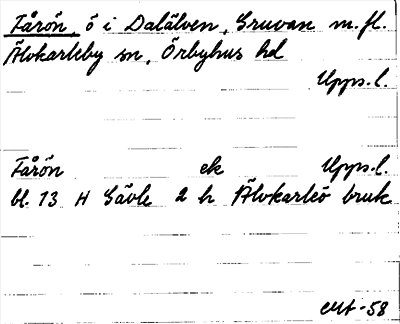 Fårön, ö i Dalälven, Gruvan m.fl.
Älvkarleby sn, Örbyhus hd
Upps.l.
Fårön ek Upps.l.
bl. 13 H Gävle 2 h Älvkarleö bruk
-58